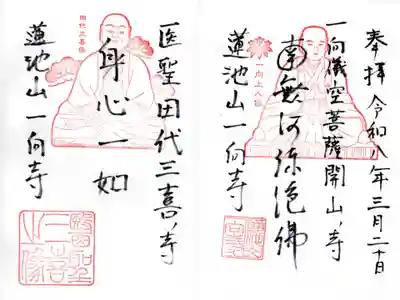 奉拝 令和八年三月二十日
一向儀空菩薩開山ノ寺
南無阿弥陀佛
蓮池山一向寺
一向上人像
医聖田代三喜ノ寺
身心一如
蓮池山一向寺
田代三喜像